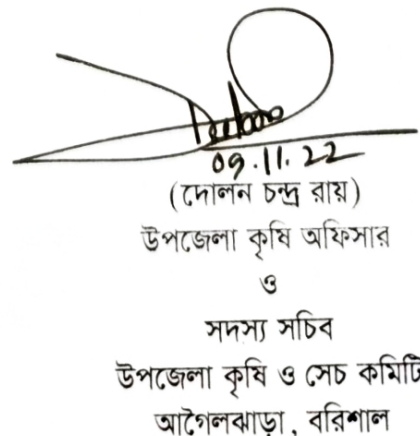 09.11.22
(দোলন চন্দ্র রায়)
উপজেলা কৃষি অফিসার
ও
সদস্য সচিব
উপজেলা কৃষি ও সেচ কমিটি
আগৈলঝাড়া, বরিশাল